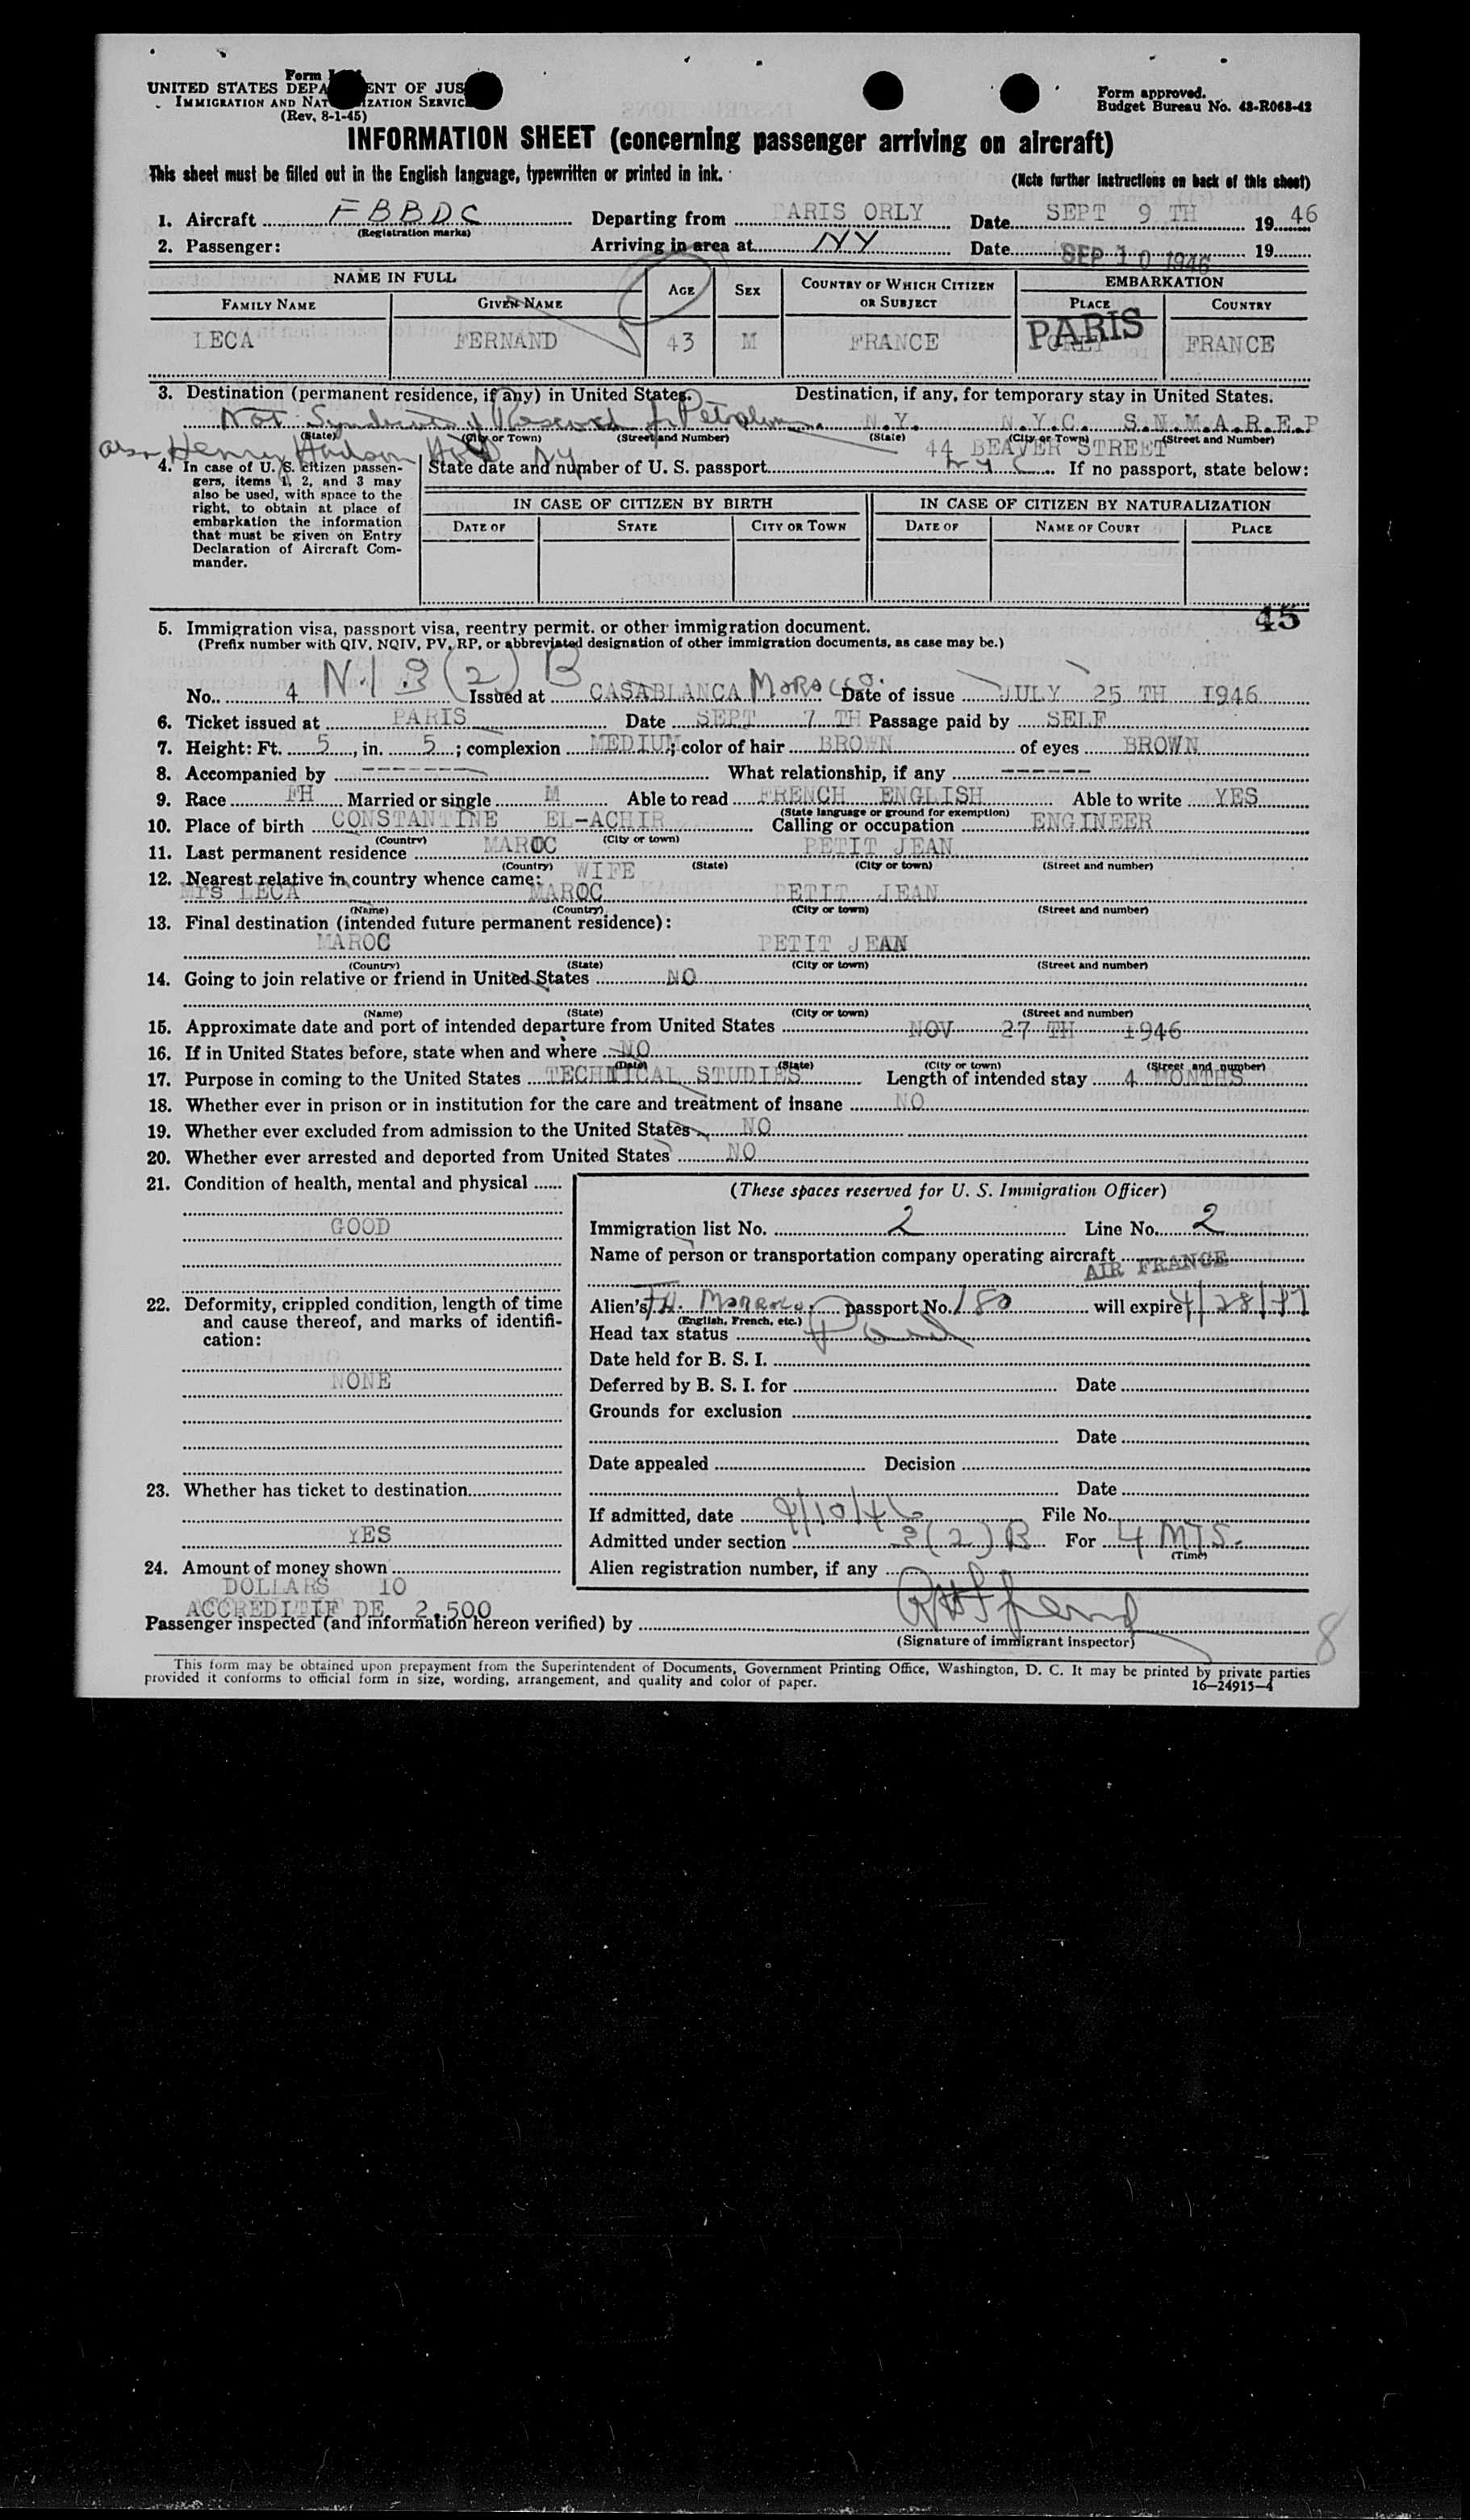 Form I
UNITED STATES DEPA ENT OF JUS
IMMIGRATION AND NAT IZATION SERVIC
(Rev. 8-1-45)
Form approved.
Budget Bureau No. 43-R063-42
INFORMATION SHEET (concerning passenger arriving on aircraft)
This sheet must be filled out in the English language, typewritten or printed in ink.
(Note further instructions on back of this sheet)
1. Aircraft FBBDC Departing from PARIS ORLY Date SEPT 9 TH 1946
(Registration marks)
2. Passenger: Arriving in area at NY Date SEP 10 1946 19
NAME IN FULL AGE SEX COUNTRY OF WHICH CITIZEN OR SUBJECT EMBARKATION
FAMILY NAME GIVEN NAME PLACE COUNTRY
LECA FERNAND 43 M FRANCE PARIS FRANCE
3. Destination (permanent residence, if any) in United States. Destination, if any, for temporary stay in United States.
Not Syndicate of Research for Petroleum N.Y. N.Y.C. S.N.M.A.R.E.P
(State) (City or Town) (Street and Number) (State) (City or Town) (Street and Number)
also Henry Hudson Hotel NY 44 BEAVER STREET
4. In case of U. S. citizen passengers, items 1, 2, and 3 may also be used, with space to the right, to obtain at place of embarkation the information that must be given on Entry Declaration of Aircraft Commander.
State date and number of U. S. passport NYC If no passport, state below:
IN CASE OF CITIZEN BY BIRTH IN CASE OF CITIZEN BY NATURALIZATION
DATE OF STATE CITY OR TOWN DATE OF NAME OF COURT PLACE
45
5. Immigration visa, passport visa, reentry permit, or other immigration document.
(Prefix number with QIV, NQIV, PV, RP, or abbreviated designation of other immigration documents, as case may be.)
No. 4 N.I 3(2) B Issued at CASABLANCA Morocco. Date of issue JULY 25 TH 1946
6. Ticket issued at PARIS Date SEPT 7 TH Passage paid by SELF
7. Height: Ft. 5, in. 5; complexion MEDIUM; color of hair BROWN of eyes BROWN
8. Accompanied by ------- What relationship, if any ------
9. Race FH Married or single M Able to read FRENCH ENGLISH Able to write YES
(State language or ground for exemption)
10. Place of birth CONSTANTINE EL-ACHIR Calling or occupation ENGINEER
(Country) (City or town)
11. Last permanent residence MAROC PETIT JEAN
(Country) (State) (City or town) (Street and number)
12. Nearest relative in country whence came: WIFE
Mrs LECA MAROC PETIT JEAN
(Name) (Country) (City or town) (Street and number)
13. Final destination (intended future permanent residence):
MAROC PETIT JEAN
(Country) (State) (City or town) (Street and number)
14. Going to join relative or friend in United States NO
(Name) (State) (City or town) (Street and number)
15. Approximate date and port of intended departure from United States NOV 27 TH 1946
16. If in United States before, state when and where NO
(Date) (State) (City or town) (Street and number)
17. Purpose in coming to the United States TECHNICAL STUDIES Length of intended stay 4 MONTHS
18. Whether ever in prison or in institution for the care and treatment of insane NO
19. Whether ever excluded from admission to the United States NO
20. Whether ever arrested and deported from United States NO
21. Condition of health, mental and physical
GOOD
22. Deformity, crippled condition, length of time and cause thereof, and marks of identification:
NONE
23. Whether has ticket to destination
YES
24. Amount of money shown
DOLLARS 10
ACCREDITIF DE 2.500
(These spaces reserved for U. S. Immigration Officer)
Immigration list No. 2 Line No. 2
Name of person or transportation company operating aircraft
AIR FRANCE
Alien's FH. Morocco passport No. 180 will expire 4/28/47
(English, French, etc.)
Head tax status Paid
Date held for B. S. I.
Deferred by B. S. I. for Date
Grounds for exclusion
Date
Date appealed Decision
Date
If admitted, date 9/10/46 File No.
Admitted under section 3(2)B For 4 MTS.
(Time)
Alien registration number, if any
Passenger inspected (and information hereon verified) by
(Signature of immigrant inspector)
8
This form may be obtained upon prepayment from the Superintendent of Documents, Government Printing Office, Washington, D. C. It may be printed by private parties
provided it conforms to official form in size, wording, arrangement, and quality and color of paper. 16—24915-4